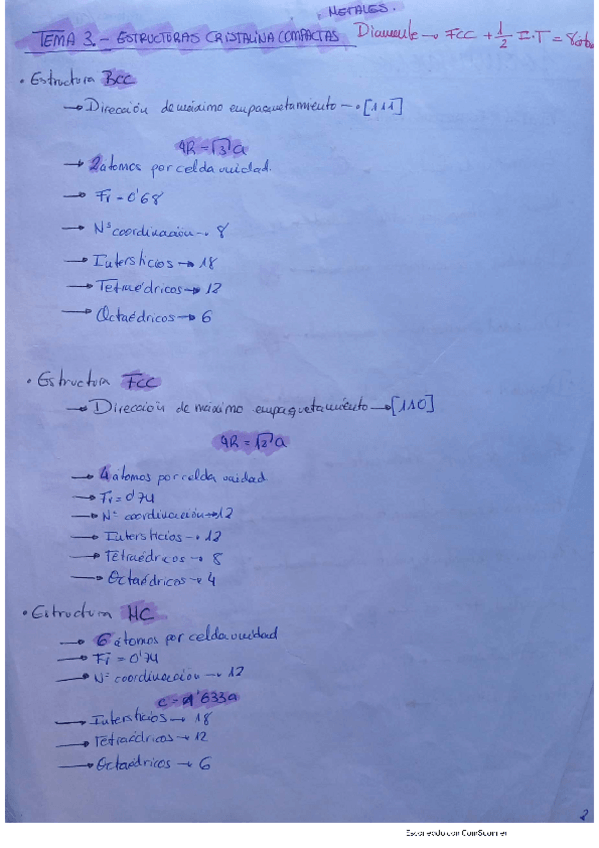 METALES.
TEMA 3.- ESTRUCTURAS CRISTALINA COMPACTAS Diamante → FCC + 1/2 I.T = 8
• Estructura BCC
→ Dirección de máximo empaquetamiento → [111]
4R = √3 a
→ 2 atomos por celda unidad.
→ Fi - 0'68
→ Nº coordinación → 8
→ Intersticios → 18
→ Tetraédricos → 12
→ Octaédricos → 6
• Estructura FCC
→ Dirección de máximo empaquetamiento → [110]
4R = √2 a
→ 4 atomos por celda unidad
→ Fi = 0'74
→ Nº coordinación → 12
→ Intersticios → 12
→ Tetraédricos → 8
→ Octaédricos → 4
• Estructura HC
→ 6 átomos por celda unidad
→ Fi = 0'74
→ Nº coordinación → 12
c = 1'633a
→ Intersticios → 18
→ Tetraédricos → 12
→ Octaédricos → 6
2
Escaneado con CamScanner